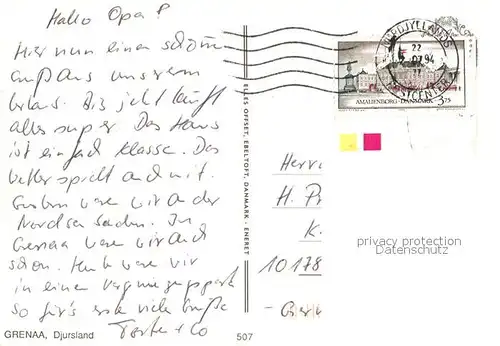 Hallo Opa!
Hier nun einen schönen
Gruß aus unserem
Urlaub. Bis jetzt läuft
alles super. Das Haus
ist einfach Klasse. Das
Wetter spielt auch mit.
Gestern waren wir an der
Nordsee baden. In
Grenaa waren wir auch
schon. Heute waren wir
in einem Vergnügungspark
so für's erste viele Grüße
+ Co
GRENAA, Djursland
507
ELLES OFFSET, EBELTOFT, DANMARK - ENERET
NORDJYLLANDS
POSTCENTER
22
07.94
AMALIENBORG · DANMARK 3.75
Herrn
H. Pr
K.
10178
privacy protection
Datenschutz